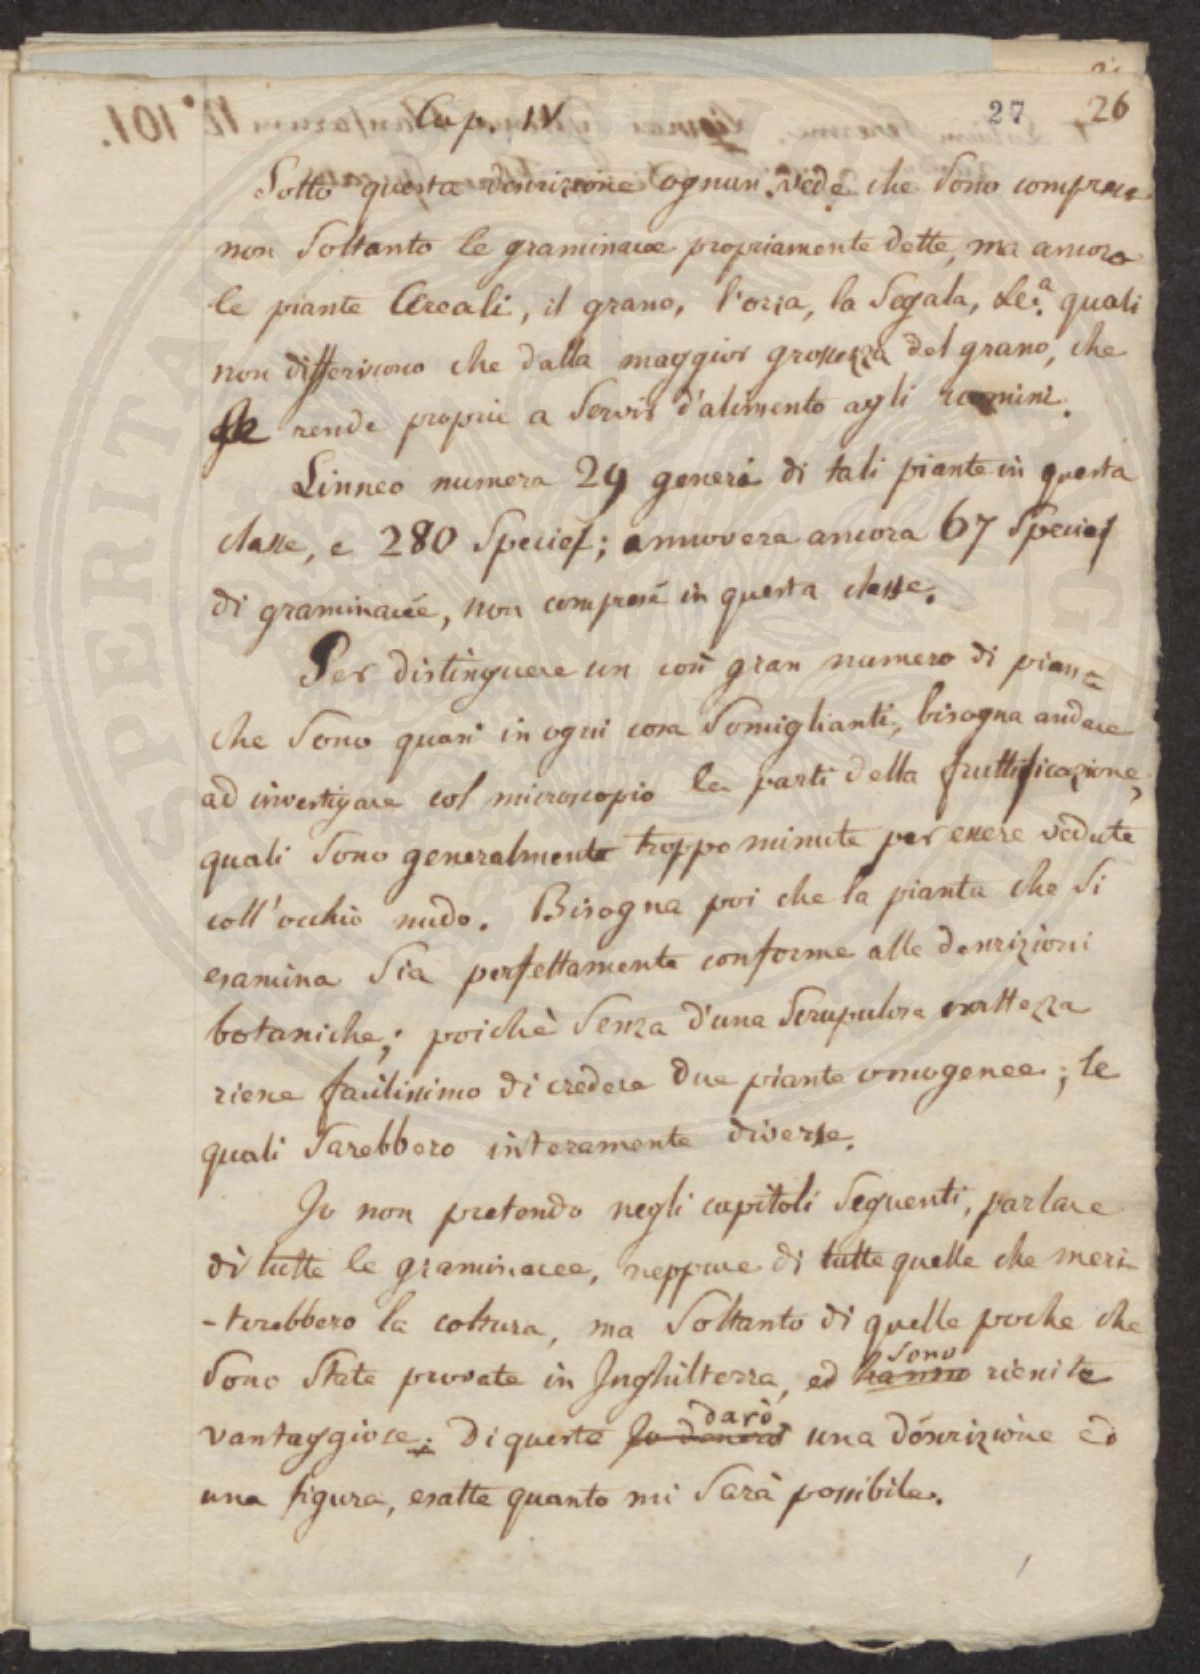 27 26
Cap. IV.
Sotto questa descrizione ognun vede che sono comprese
non soltanto le graminacee propriamente dette, ma ancora
le piante Cereali, il grano, l'orza, la Segala, &c.ª quali
non differiscono che dalla maggior grossezza del grano, che
le rende proprie a servir d'alimento agli uomini.
Linneo numera 29 generi di tali piante in questa
classe, e 280 Specief; annovera ancora 67 Specief
di graminacée, non compresé in questa classe.
Per distinguere un così gran numero di piante
che sono quasi in ogni cosa somiglianti, bisogna andare
ad investigare col microscopio le parti della fruttificazione,
quali sono generalmente troppo minute per essere vedute
coll'occhio nudo. Bisogna poi che la pianta che si
esamina sia perfettamente conforme alle descrizioni
botaniche; poichè senza d'una scrupulosa esattezza
riene facilissimo di credere due piante omogenee; le
quali sarebbero interamente diverse.
Io non pretendo negli capitoli seguenti, parlare
di tutte le graminacee, neppure di tutte quelle che meri-
-terebbero la coltura, ma soltanto di quelle poche che
sono state provate in Inghilterra, ed hanno sono rienite
vantaggiose: Di queste darò una descrizione ed
una figura, esatte quanto mi sarà possibile.
N.° 101.